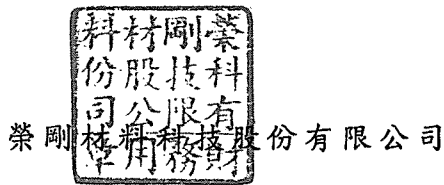 榮剛材料
科技股份
有限公司
財務用章
榮剛材料科技股份有限公司